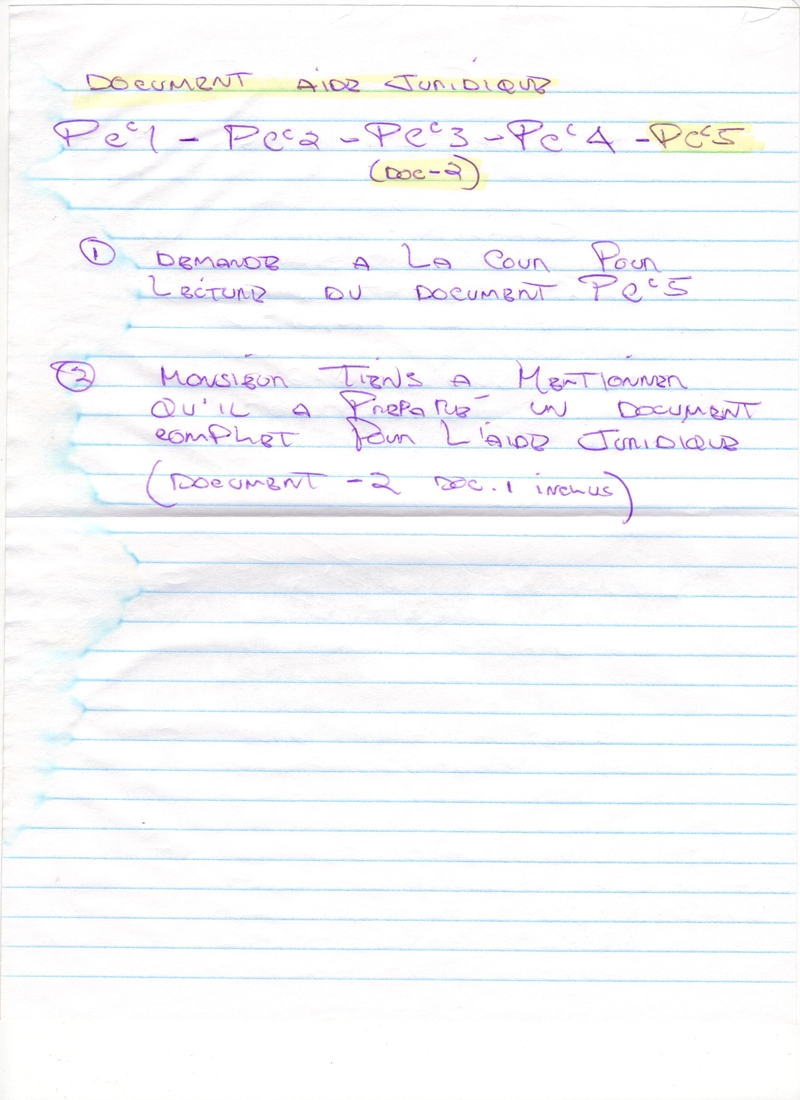 DOCUMENT AIDE JURIDIQUE
PCC1 - PCC2 - PCC3 - PCC4 - PCC5
(DOC-2)
① DEMANDE A LA COUR POUR
LECTURE DU DOCUMENT PCC5
② MONSIEUR TIENS A MENTIONNER
QU'IL A PREPARÉ UN DOCUMENT
COMPLET POUR L'AIDE JURIDIQUE
(DOCUMENT -2 DOC.1 inclus)